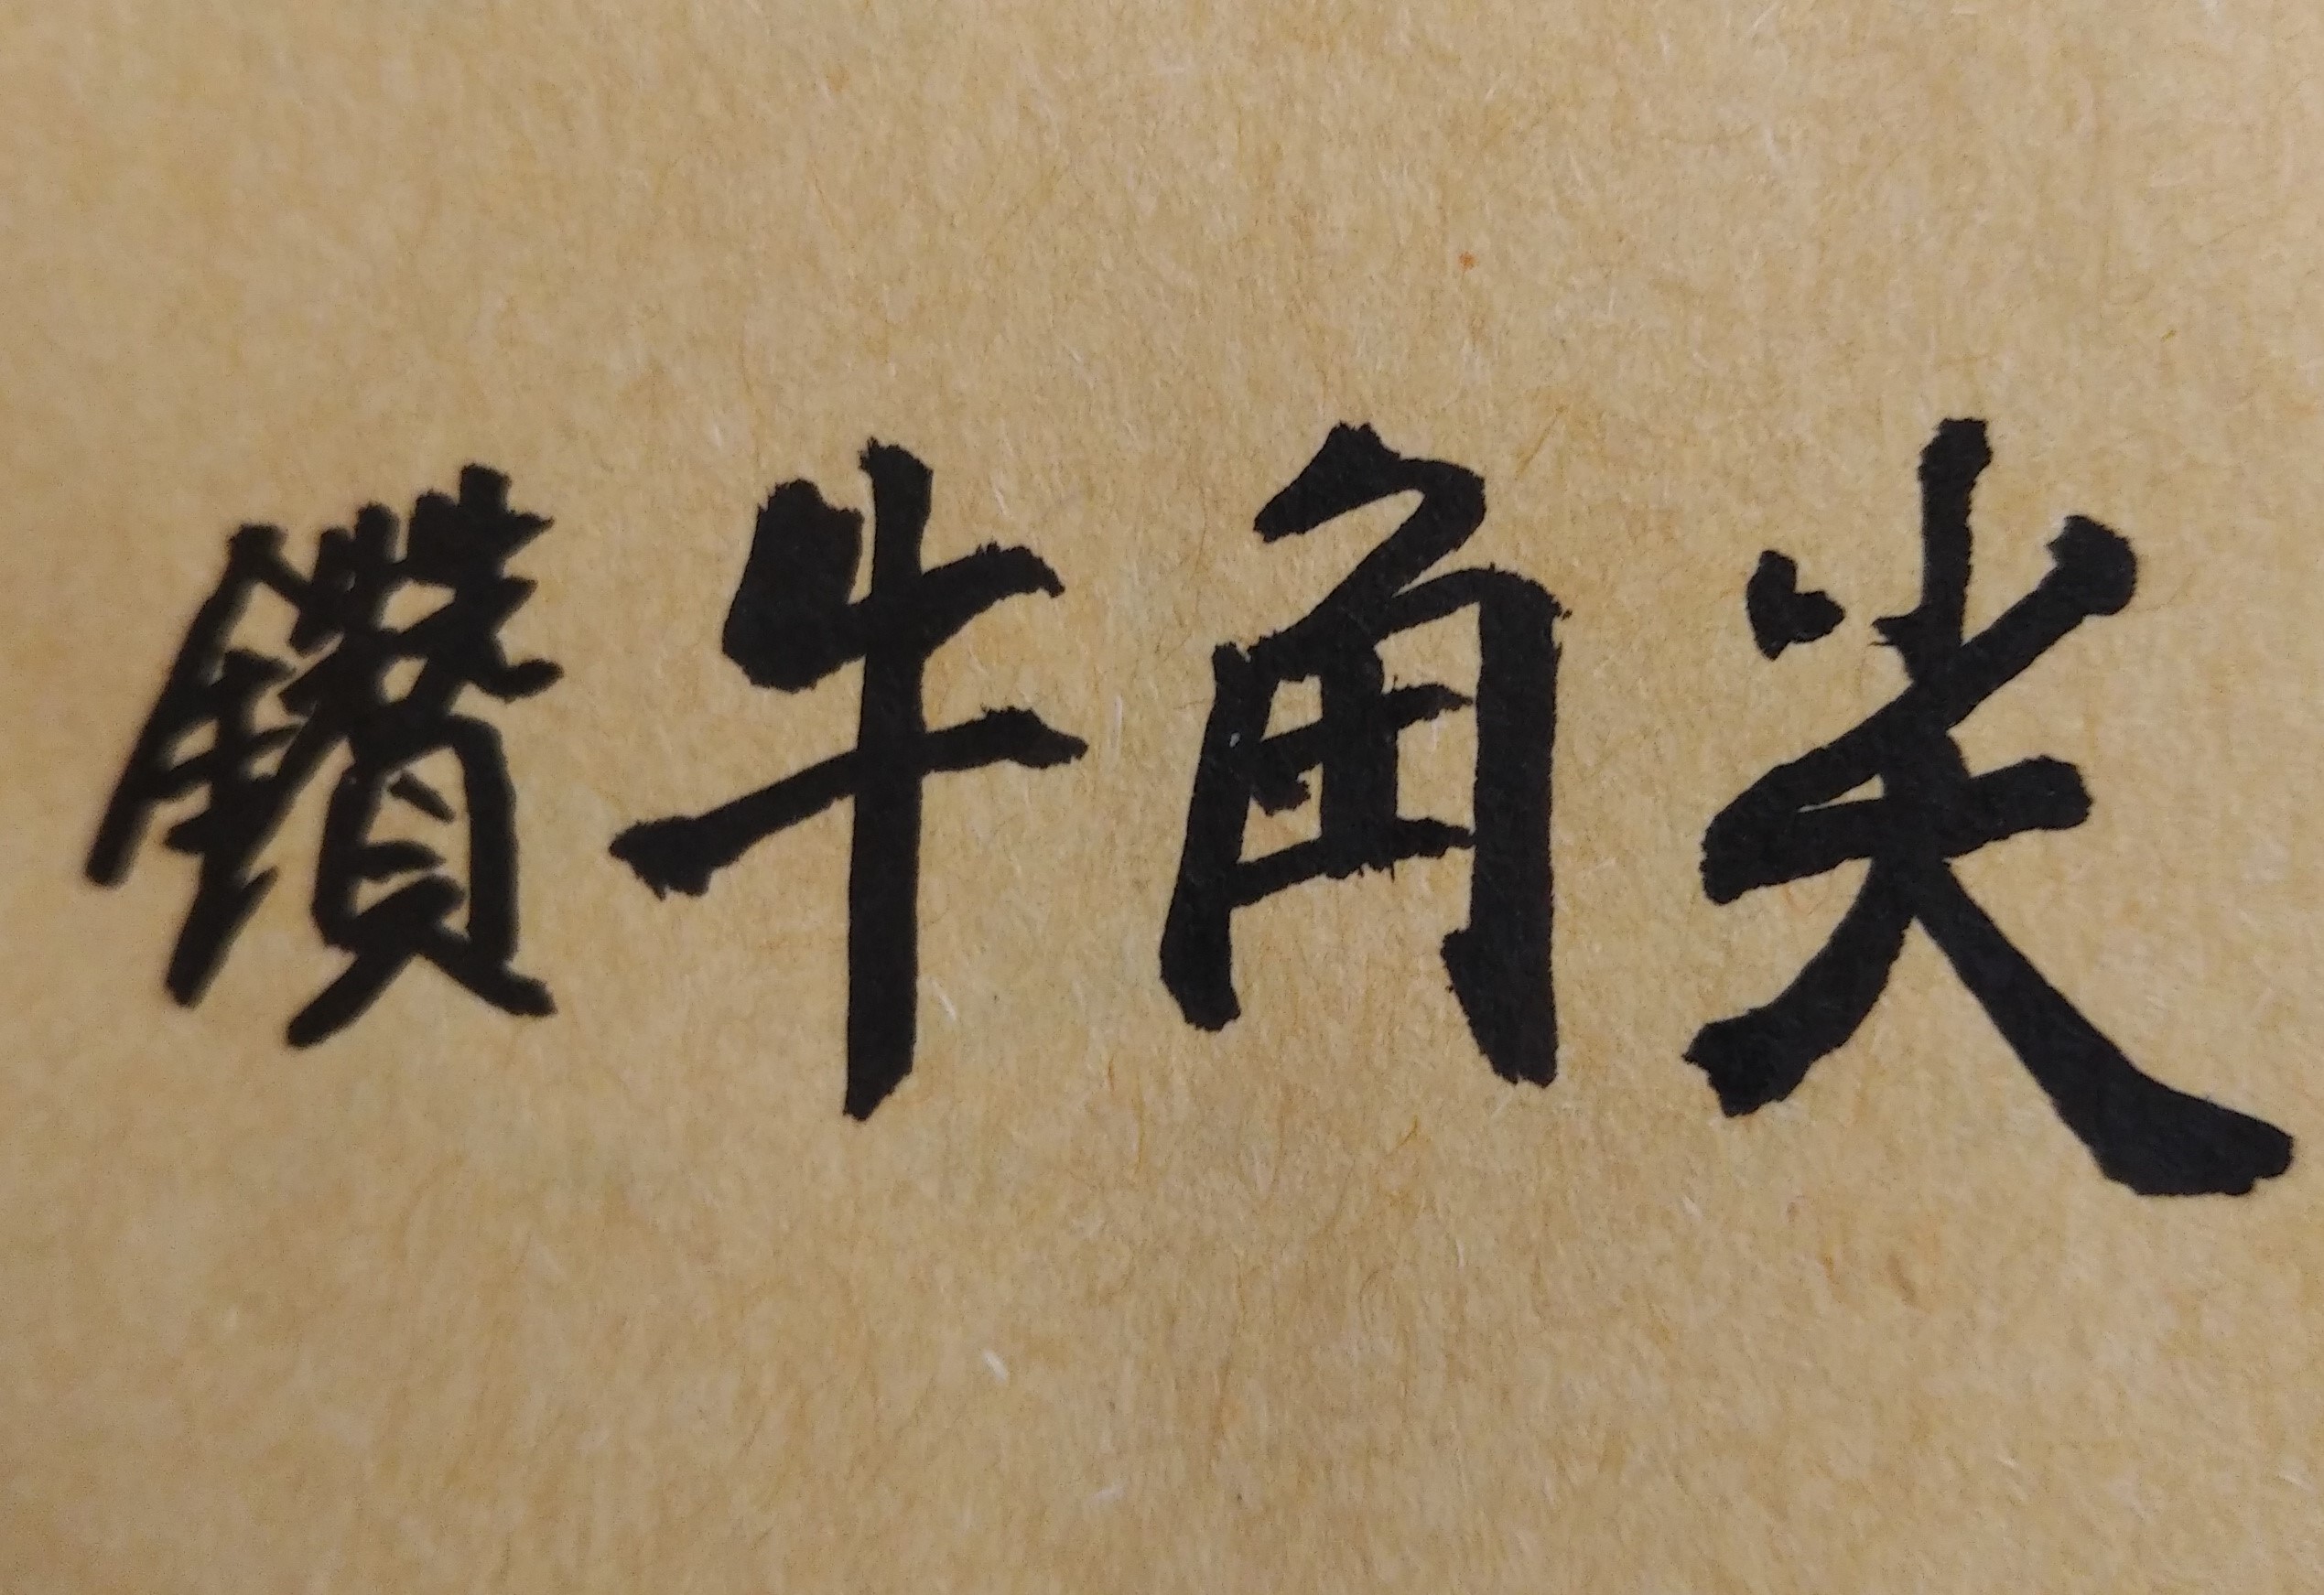 鑽牛角尖